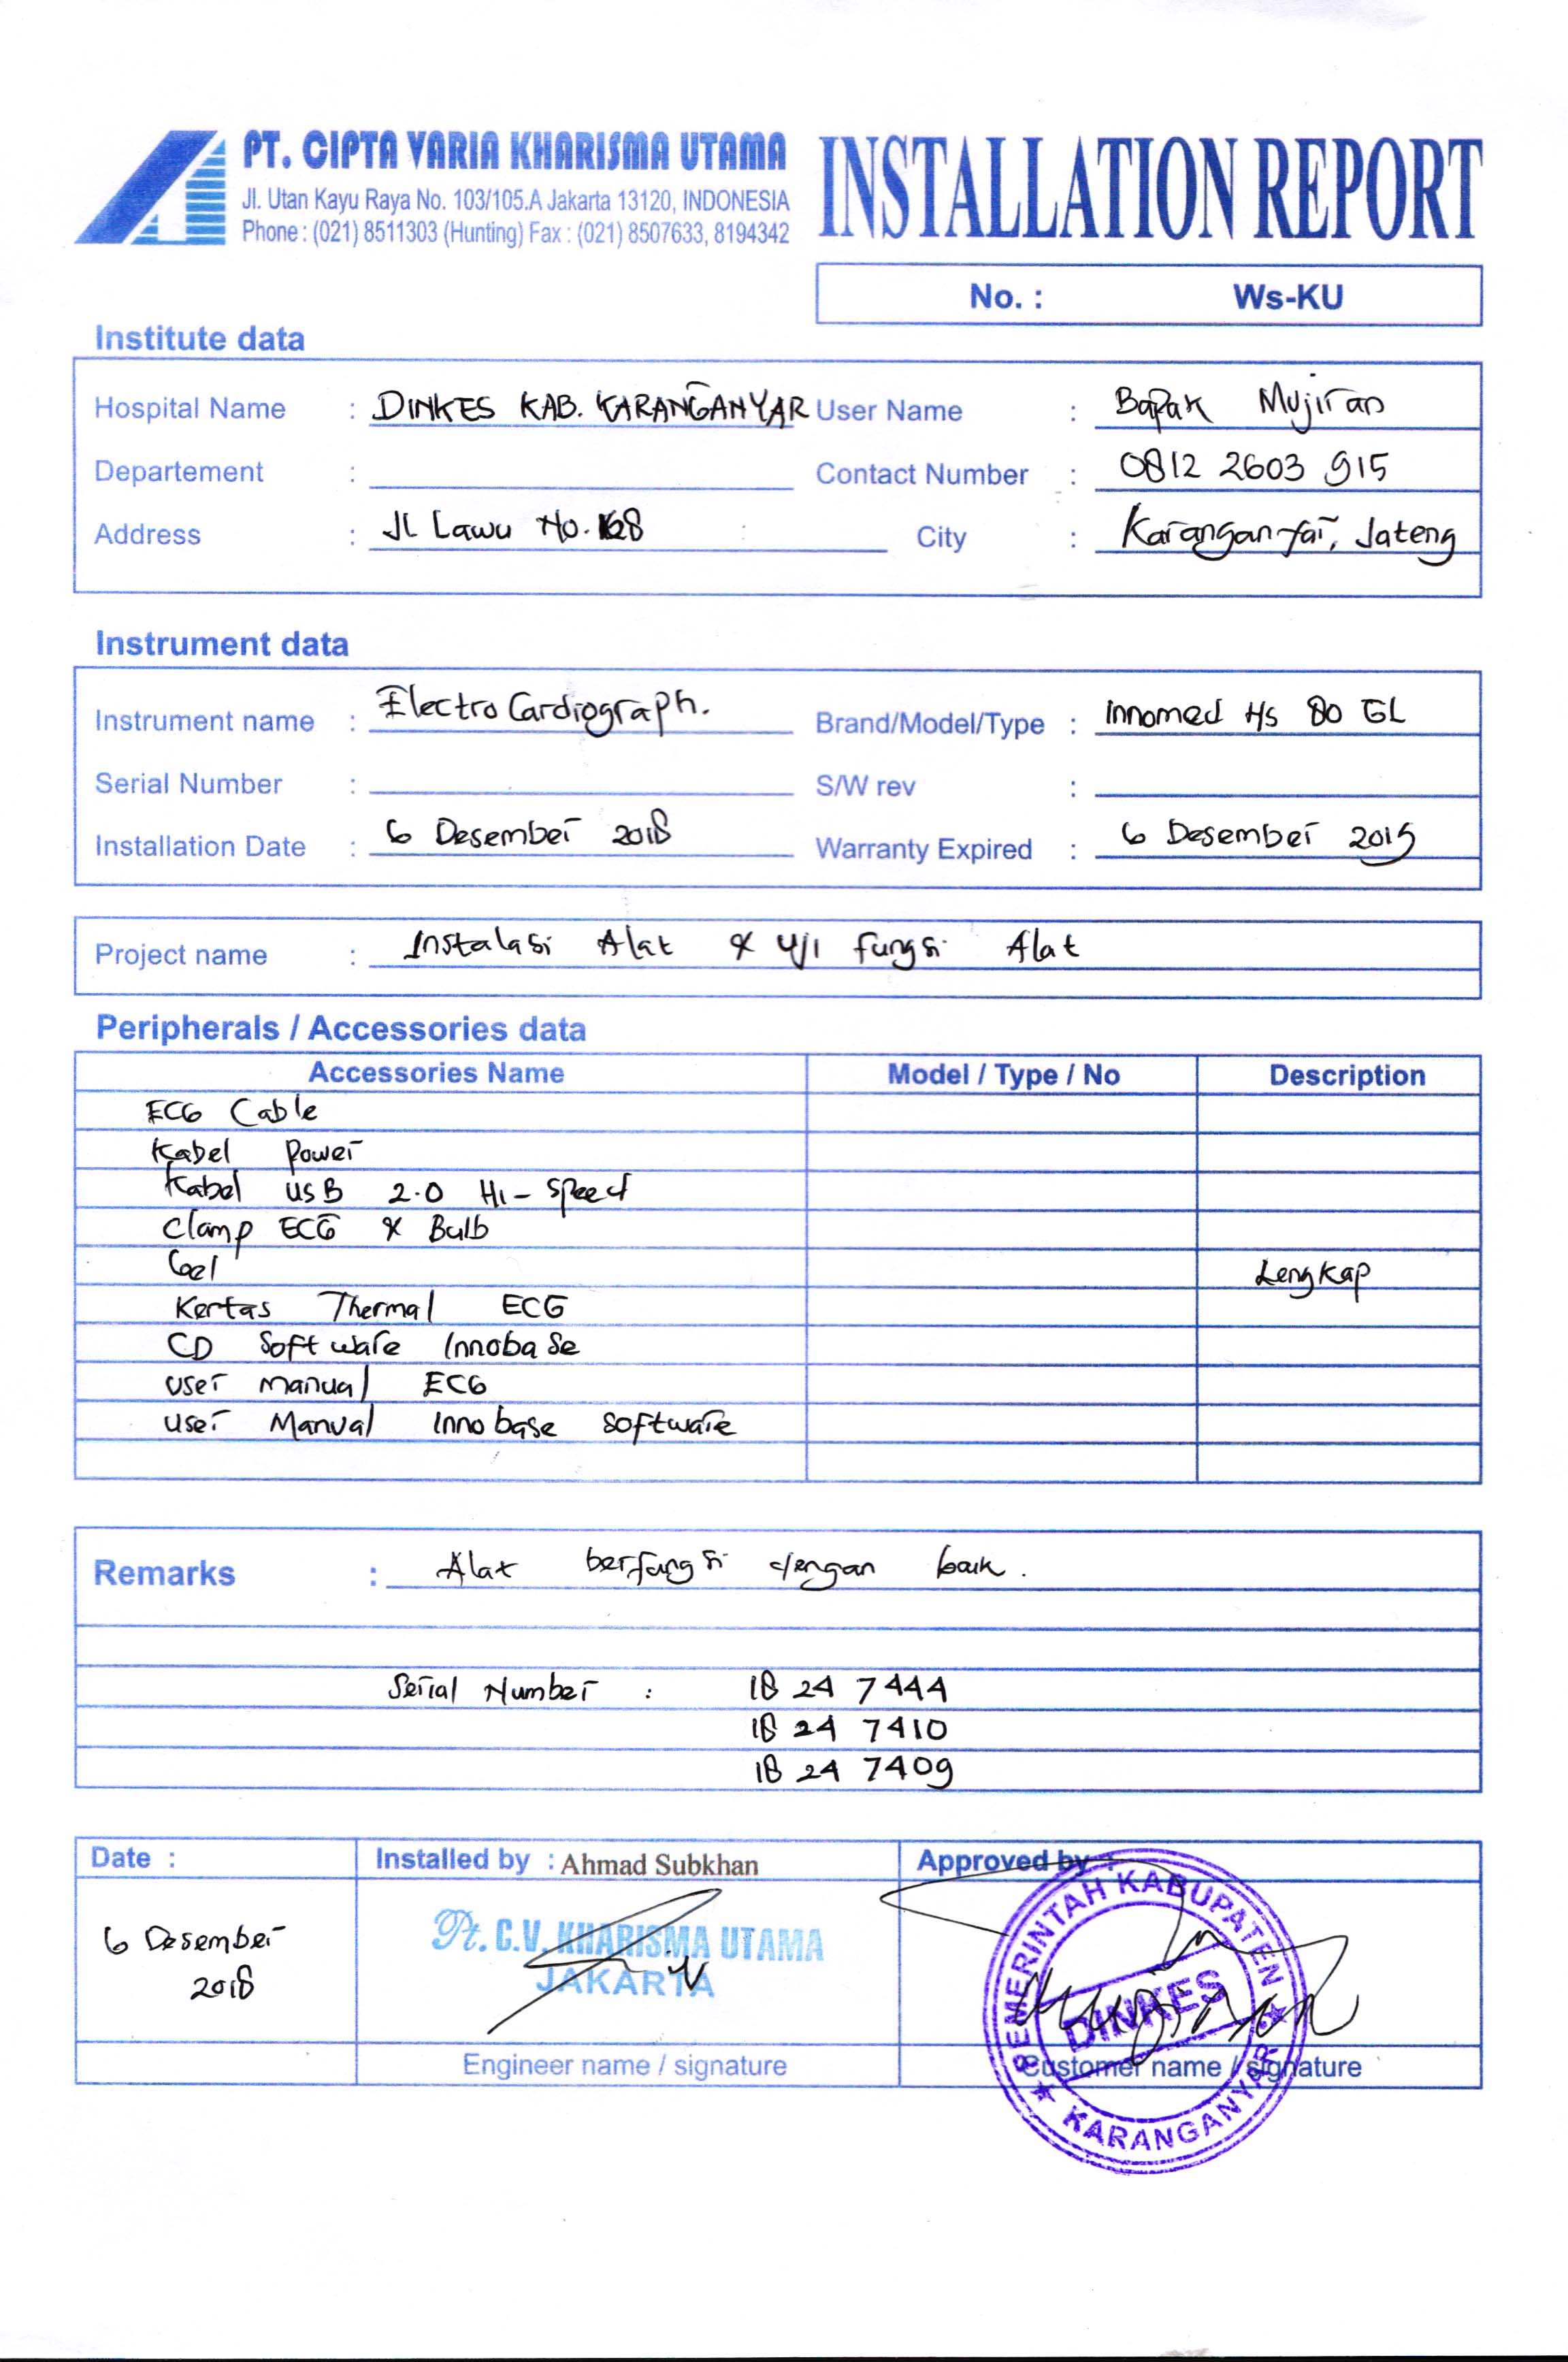 PT. CIPTA VARIA KHARISMA UTAMA
Jl. Utan Kayu Raya No. 103/105.A Jakarta 13120, INDONESIA
Phone : (021) 8511303 (Hunting) Fax : (021) 8507633, 8194342
INSTALLATION REPORT
No. : Ws-KU
Institute data
Hospital Name : DINKES KAB. KARANGANYAR User Name : Bapak Mujiran
Departement : Contact Number : 0812 2603 915
Address : Jl Lawu No. 168 City : Karanganyar, Jateng
Instrument data
Instrument name : Electro Cardiograph. Brand/Model/Type : Innomed Hs 80 GL
Serial Number : S/W rev :
Installation Date : 6 Desember 2018 Warranty Expired : 6 Desember 2019
Project name : Instalasi Alat & Uji fungsi Alat
Peripherals / Accessories data
Accessories Name Model / Type / No Description
ECG Cable
Kabel Power
Kabel USB 2.0 Hi-Speed
Clamp ECG & Bulb
Gel Lengkap
Kertas Thermal ECG
CD Software Innobase
User Manual ECG
User Manual Innobase software
Remarks : Alat berfungsi dengan baik.
Serial Number : 18 24 7444
18 24 7410
18 24 7409
Date : Installed by : Ahmad Subkhan Approved by :
6 Desember 2018
Pt. C.V. KHARISMA UTAMA
JAKARTA
PEMERINTAH KABUPATEN
DINKES
KARANGANYAR
Engineer name / signature Customer name / signature